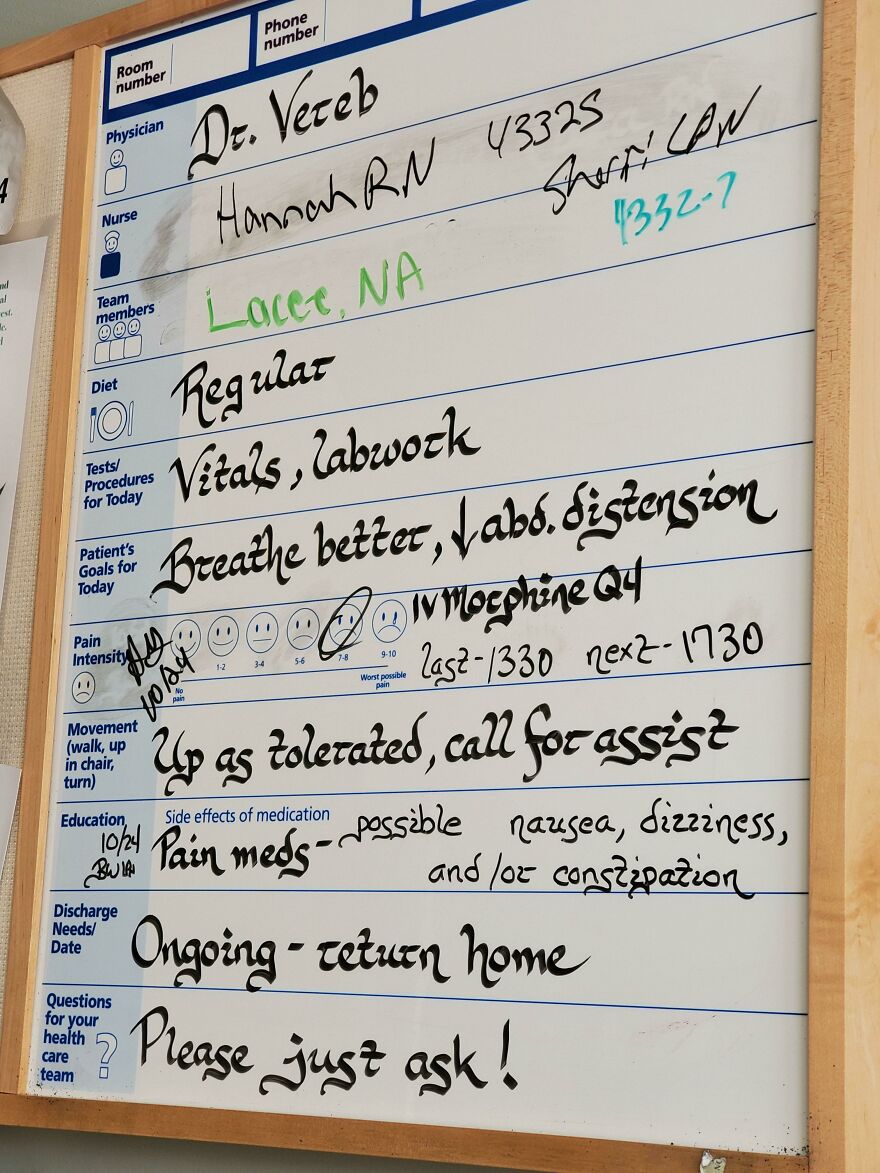 Room number
Phone number
Physician
Dr. Vereb
Nurse
Hannah RN 43325 Sherri LPN
4332-7
Team members
Lacee, NA
Diet
Regular
Tests/ Procedures for Today
Vitals, labwork
Patient's Goals for Today
Breathe better, ↓ abd. distension
Pain Intensity
10/24
No pain
1-2
3-4
5-6
7-8
9-10
Worst possible pain
IV Morphine Q4
last-1330 next-1730
Movement (walk, up in chair, turn)
Up as tolerated, call for assist
Education
10/24
Side effects of medication
Pain meds - possible nausea, dizziness,
and/or constipation
Discharge Needs/ Date
Ongoing - return home
Questions for your health care team
?
Please just ask!